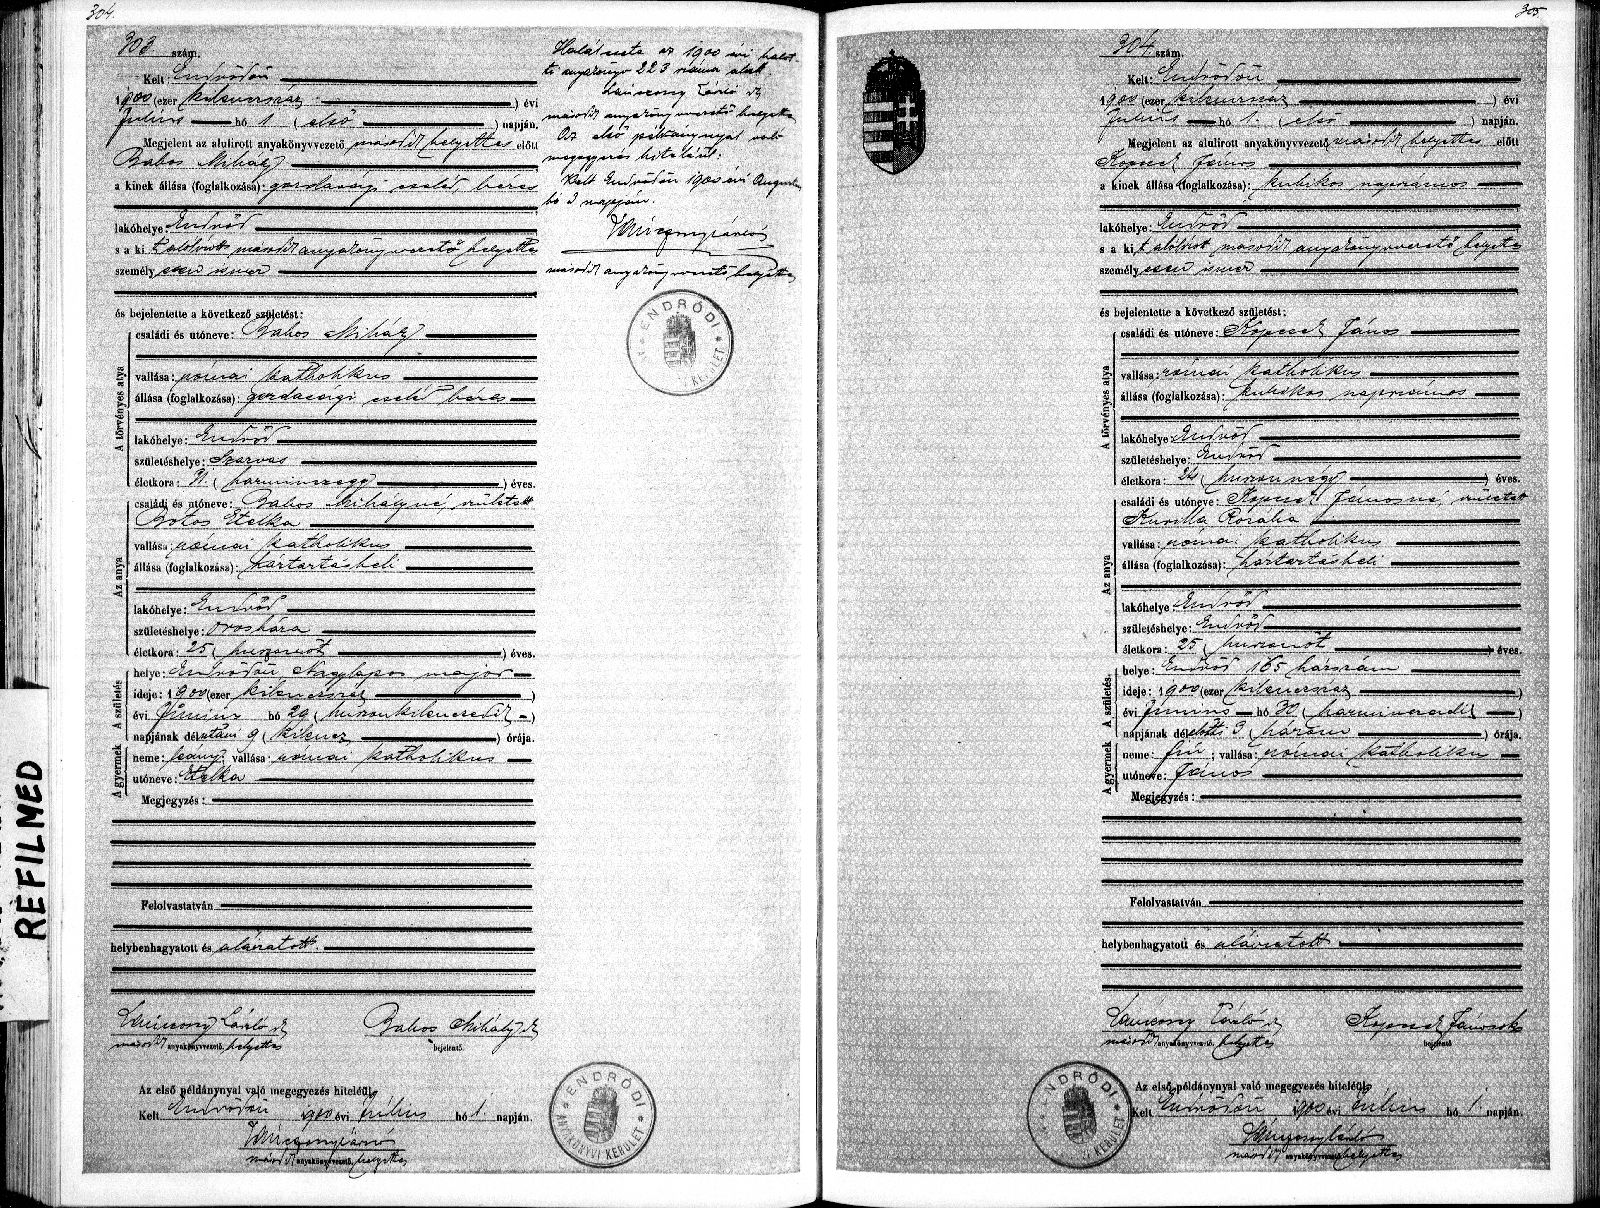 304.
303 szám.
Kelt Endrődön
1900 (ezer kilencszáz) évi
Julius hó 1 (első) napján.
Megjelent az alulirott anyakönyvvezető másodh helyettes előtt
Babos Mihály
a kinek állása (foglalkozása): gazdasági cseléd béres
lakóhelye Endrőd
s a kit alólirott másodh anyakönyvvezető helyettes
személyesen ismer
és bejelentette a következő születést:
A törvényes atya
családi és utóneve: Babos Mihály
vallása: római katholikus
állása (foglalkozása): gazdasági cseléd béres
lakóhelye: Endrőd
születéshelye: Szarvas
életkora: 31. (harminczegy) éves.
Az anya
családi és utóneve: Babos Mihályné, született
Botos Etelka
vallása: római katholikus
állása (foglalkozása): háztartásbeli
lakóhelye: Endrőd
születéshelye: Orosháza
életkora: 25 (huszonöt) éves.
A születés
helye: Endrődön Nagylapos major
ideje: 1900 (ezer kilenczszáz)
évi Június hó 29 (huszonkilenczedik)
napjának délutáni 9 (kilencz) órája.
A gyermek
neme: leány; vallása: római katholikus
utóneve: Etelka
Megjegyzés:
Felolvastatván
helybenhagyatott és aláiratott.
Lániczony László h
másodh anyakönyvvezető, helyettes
Babos Mihály
bejelentő.
Az első példánynyal való megegyezés hiteléül.
Kelt Endrődön 1900 évi Július hó 1. napján.
másodh anyakönyvvezető, helyettes
ENDRŐDI ANYAKÖNYVI KERÜLET
Halál esete az 1900 évi halot-
ti anyakönyv 223 száma alatt.
másodh anyakönyvvezető helyettes
Az első példánynyal való
megegyezés hiteléül:
Kelt Endrődön 1900 évi Augusztus
hó 3 napján.
másodh anyakönyvvezető helyettes
ENDRŐDI KERÜLET
305.
304. szám.
Kelt: Endrődön
1900 (ezer kilenczszáz) évi
Julius hó 1. (első) napján.
Megjelent az alulirott anyakönyvvezető másodh helyettes előtt
János
a kinek állása (foglalkozása): kubikos napszámos
lakóhelye: Endrőd
s a kit alólirott másodh anyakönyvvezető helyettes
személyesen ismer
és bejelentette a következő születést:
A törvényes atya
családi és utóneve: János
vallása: római katholikus
állása (foglalkozása): kubikos napszámos
lakóhelye: Endrőd
születéshelye: Endrőd
életkora: 24 (huszonnégy) éves.
Az anya
családi és utóneve: Jánosné, született
Rozália
vallása: római katholikus
állása (foglalkozása): háztartásbeli
lakóhelye: Endrőd
születéshelye: Endrőd
életkora: 25 (huszonöt) éves.
A születés
helye: Endrőd 165 házszám
ideje: 1900 (ezer kilenczszáz)
évi Június hó 30. (harminczadik)
napjának délelőtti 3 (három) órája.
A gyermek
neme: fiú; vallása: római katholikus
utóneve: János
Megjegyzés:
Felolvastatván
helybenhagyatott és aláiratott
László
másodh anyakönyvvezető, helyettes
bejelentő
Az első példánynyal való megegyezés hiteléül.
Kelt Endrődön 1900 évi Július hó 1. napján.
másodh anyakönyvvezető helyettes
ENDRŐDI KERÜLET
REFILMED